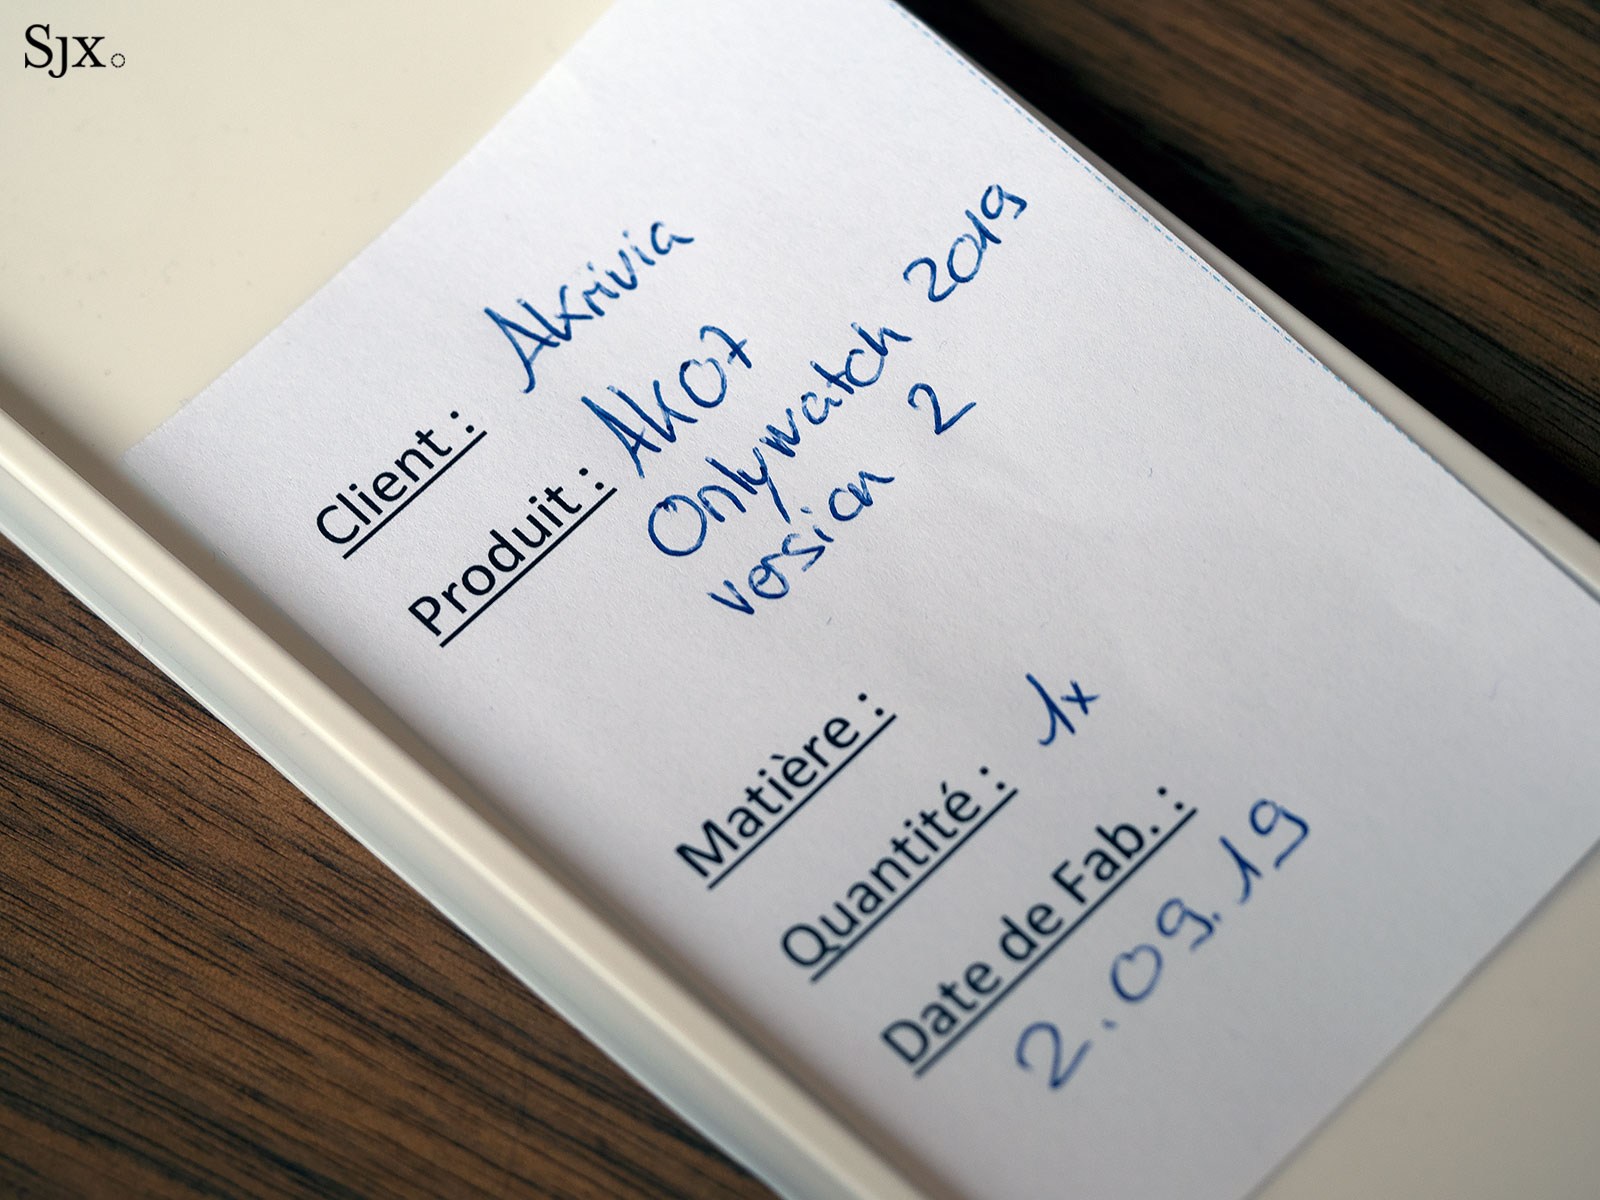 SJX
Client : Akrivia
Produit : AK07
Onlywatch 2019
version 2
Matière :
Quantité : 1x
Date de Fab. :
2.09.19